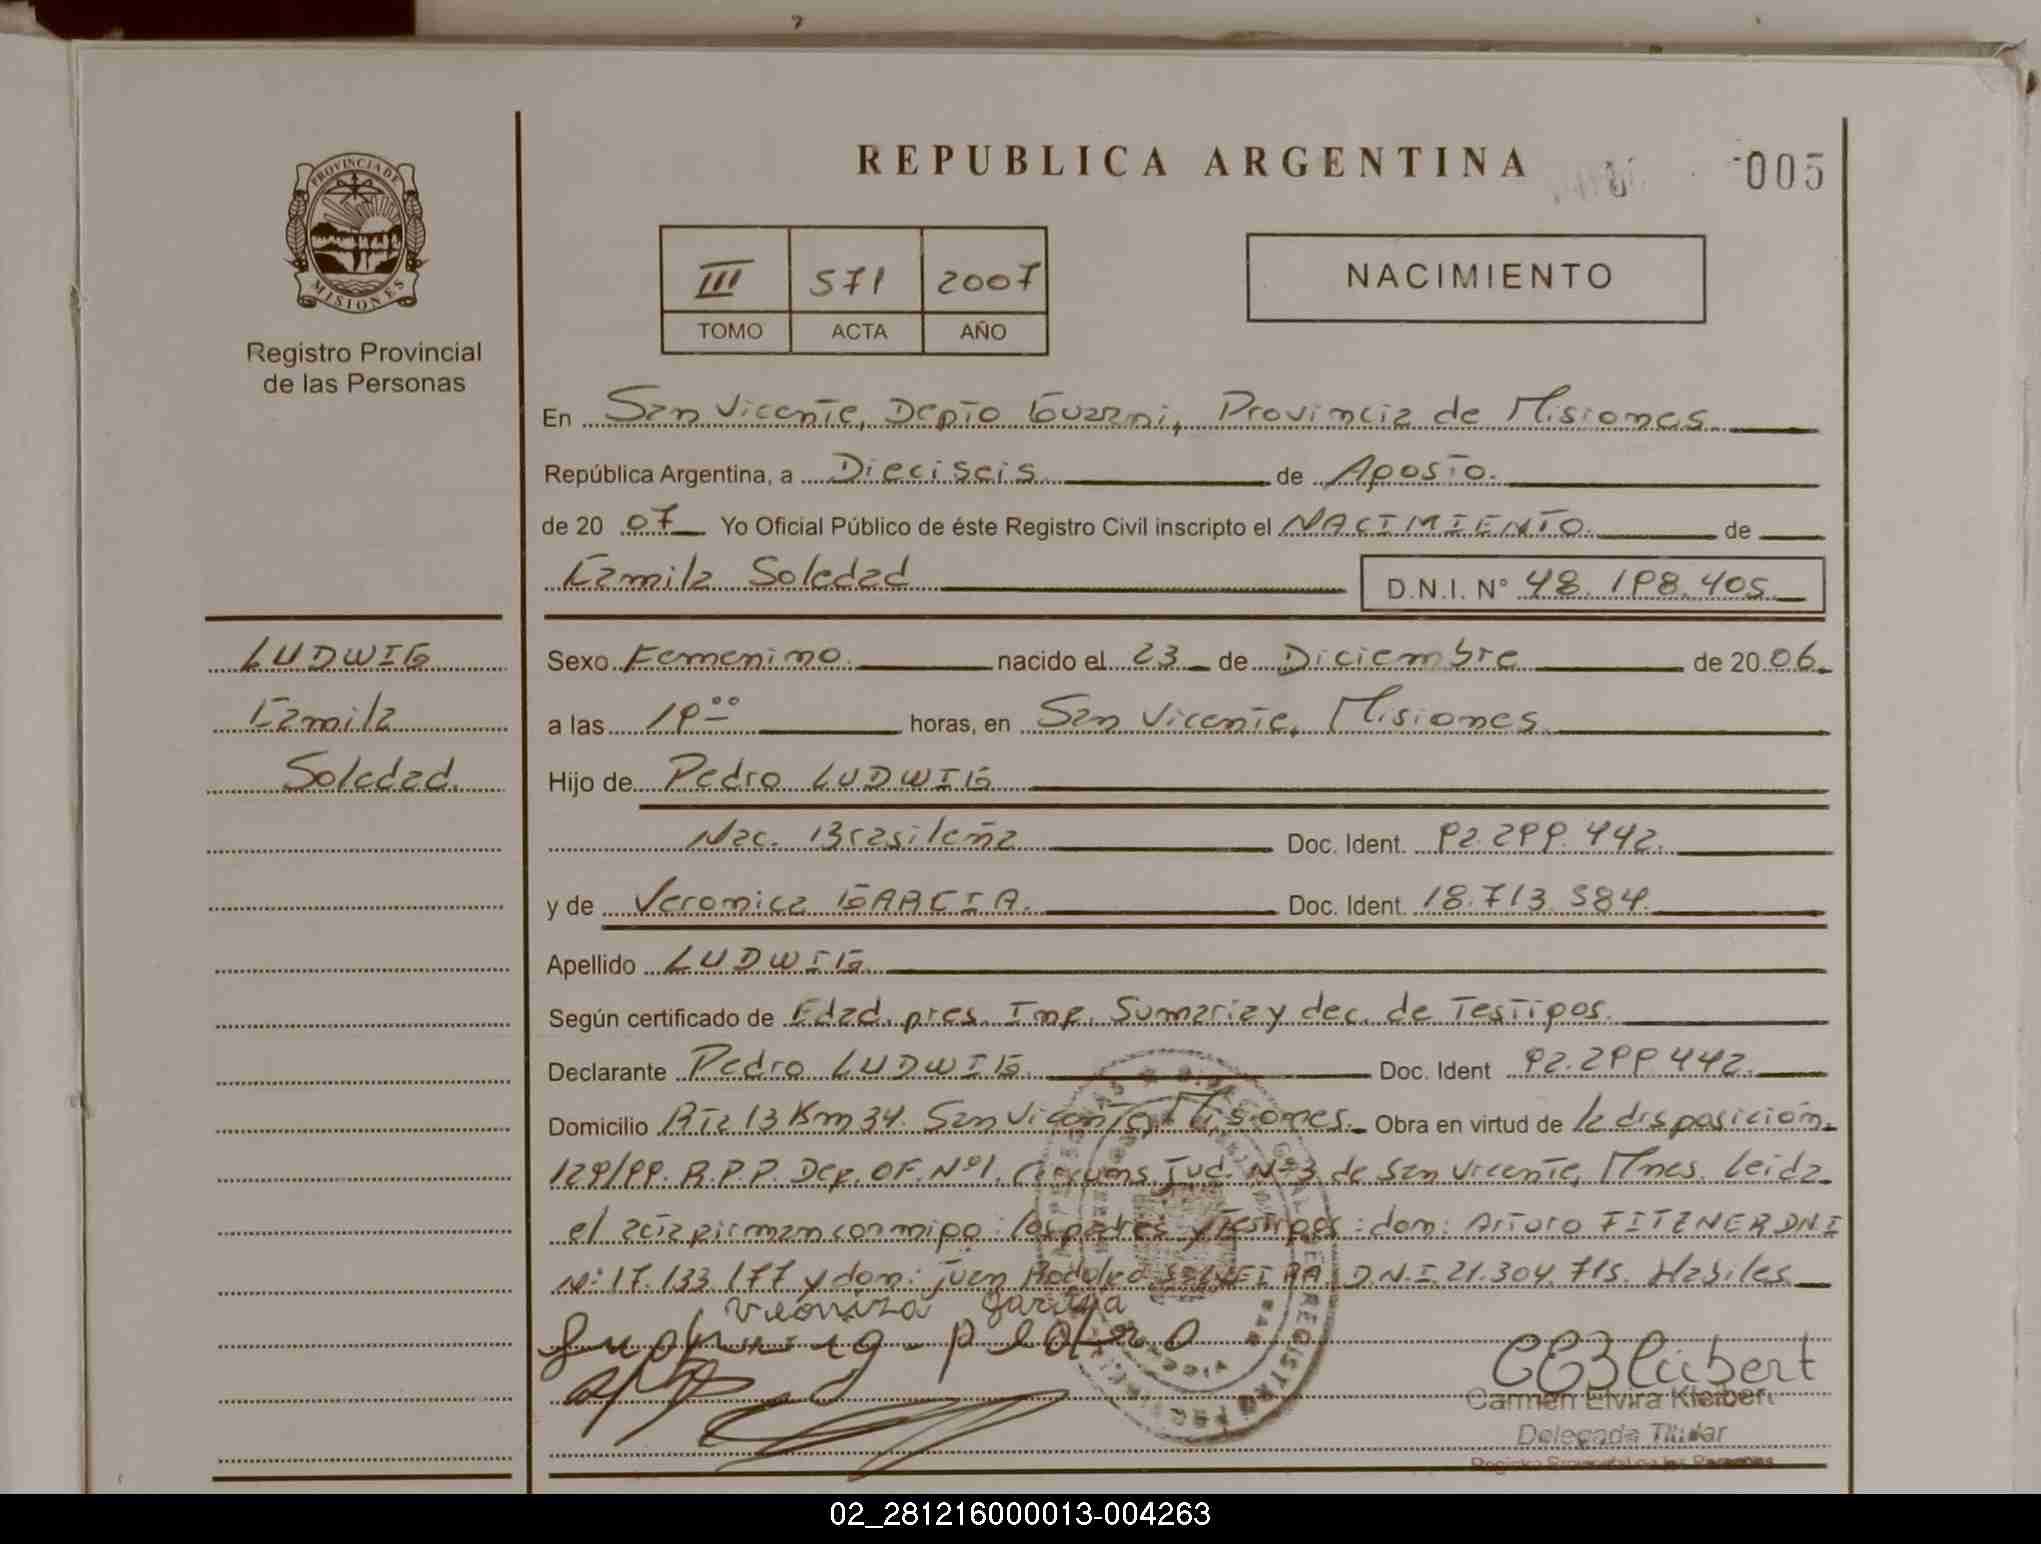 REPUBLICA ARGENTINA
005
PROVINCIA DE
MISIONES
Registro Provincial
de las Personas
III 571 2007
TOMO ACTA AÑO
NACIMIENTO
En San Vicente, Depto Guarni, Provincia de Misiones
República Argentina, a Dieciseis de Agosto.
de 20 07 Yo Oficial Público de éste Registro Civil inscripto el NACIMIENTO. de
Camila Soledad D.N.I. N° 48.198.405.
LUDWIG
Camila
Soledad.
Sexo Femenino. nacido el 23 de Diciembre de 20 06.
a las 19 00 horas, en San Vicente, Misiones.
Hijo de Pedro LUDWIG
Nac. Brasileña Doc. Ident. 92.299.442.
y de Veronica GARCIA. Doc. Ident. 18.713.584.
Apellido LUDWIG
Según certificado de Edad. pres. Inf. Sumaria y dec. de Testigos.
Declarante Pedro LUDWIG Doc. Ident 92.299 442.
Domicilio Rta 13 Km 34. San Vicente, Misiones. Obra en virtud de la disposición.
129/99. R.P.P. Dep. OF. Nº1. Circuns. Jud. Nº3 de San Vicente, Mnes. Leida
el acta firman conmigo: los padres y testigos: don: Arturo FITZNER DNI
Nº: 17.133.177 y don: Juan D.N.I. 21.304.715. Habiles
pedro
Carmen Elvira Kleibert
Delegada Titular
Registro Provincial de las Personas
02_281216000013-004263